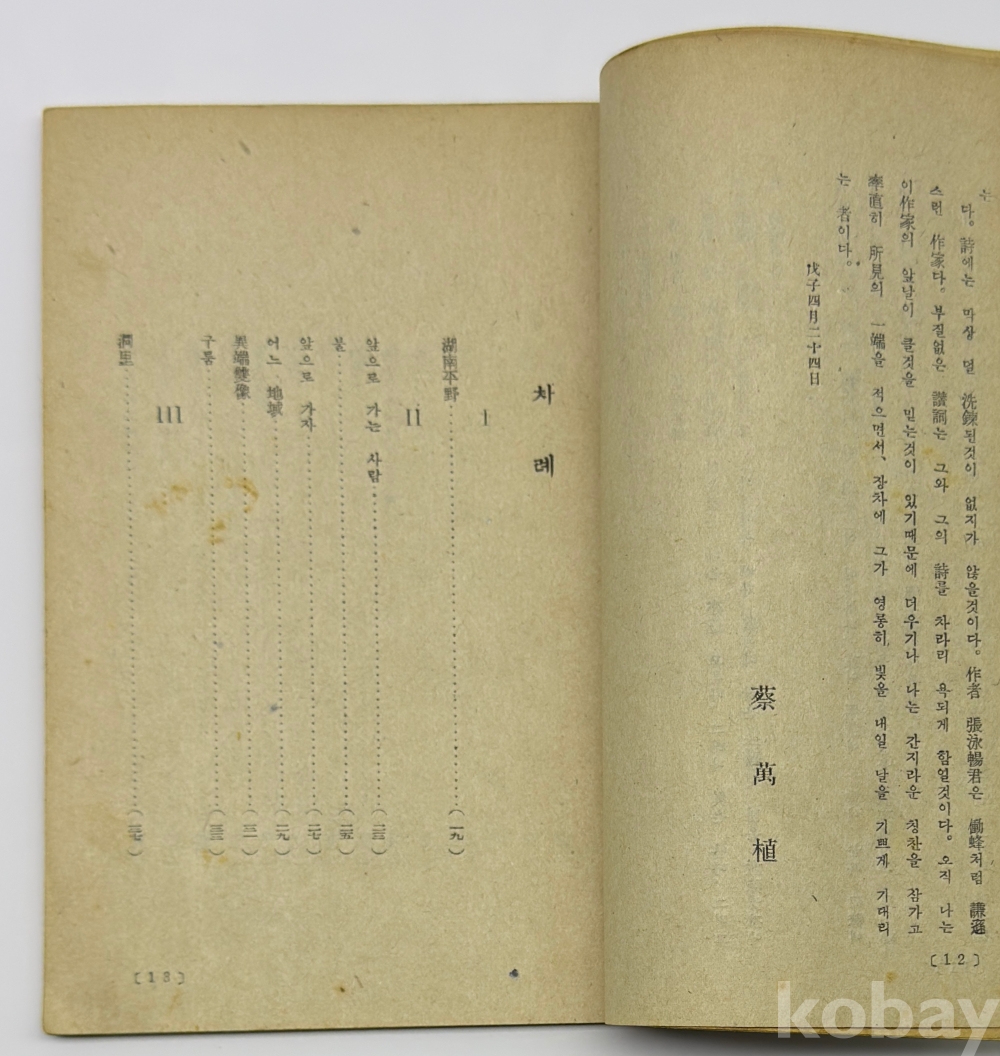 는
다。 詩에는 막상 덜 洗鍊된것이 없지가 않을것이다。 作者 張泳暢君은 働蜂처럼 謙遜
스런 作家다。 부질없은 讚詞는 그와 그의 詩를 차라리 욕되게 함일것이다。 오직 나는
이作家의 앞날이 클것을 믿는것이 있기때문에 더우기나 나는 간지라운 칭찬을 잠가고
率直히 所見의 一端을 적으면서、 장차에 그가 영롱히 빛을 내일 날을 기쁘게 기대리
는 者이다。
戊子四月二十四日
蔡萬植
〔12〕
차례
I
湖南平野 (一九)
II
앞으로 가는 사람 (二三)
불 (二五)
앞으로 가자 (二七)
어느 地域 (二九)
異端雙像 (三一)
구름 (三三)
III
洞里 (三七)
〔13〕
kobay